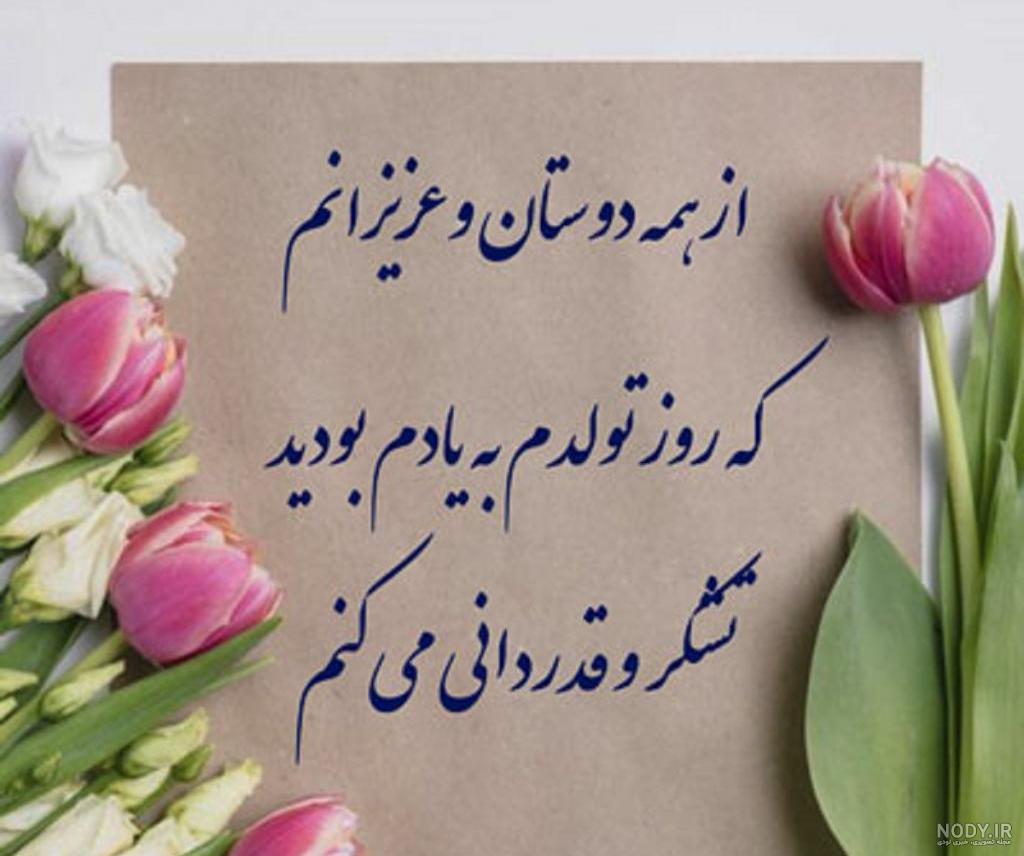 از همه دوستان و عزیزانم
که روز تولدم به یادم بودید
تشکر و قدردانی می کنم
NODY.IR
مجله تصویری، خبری نودی